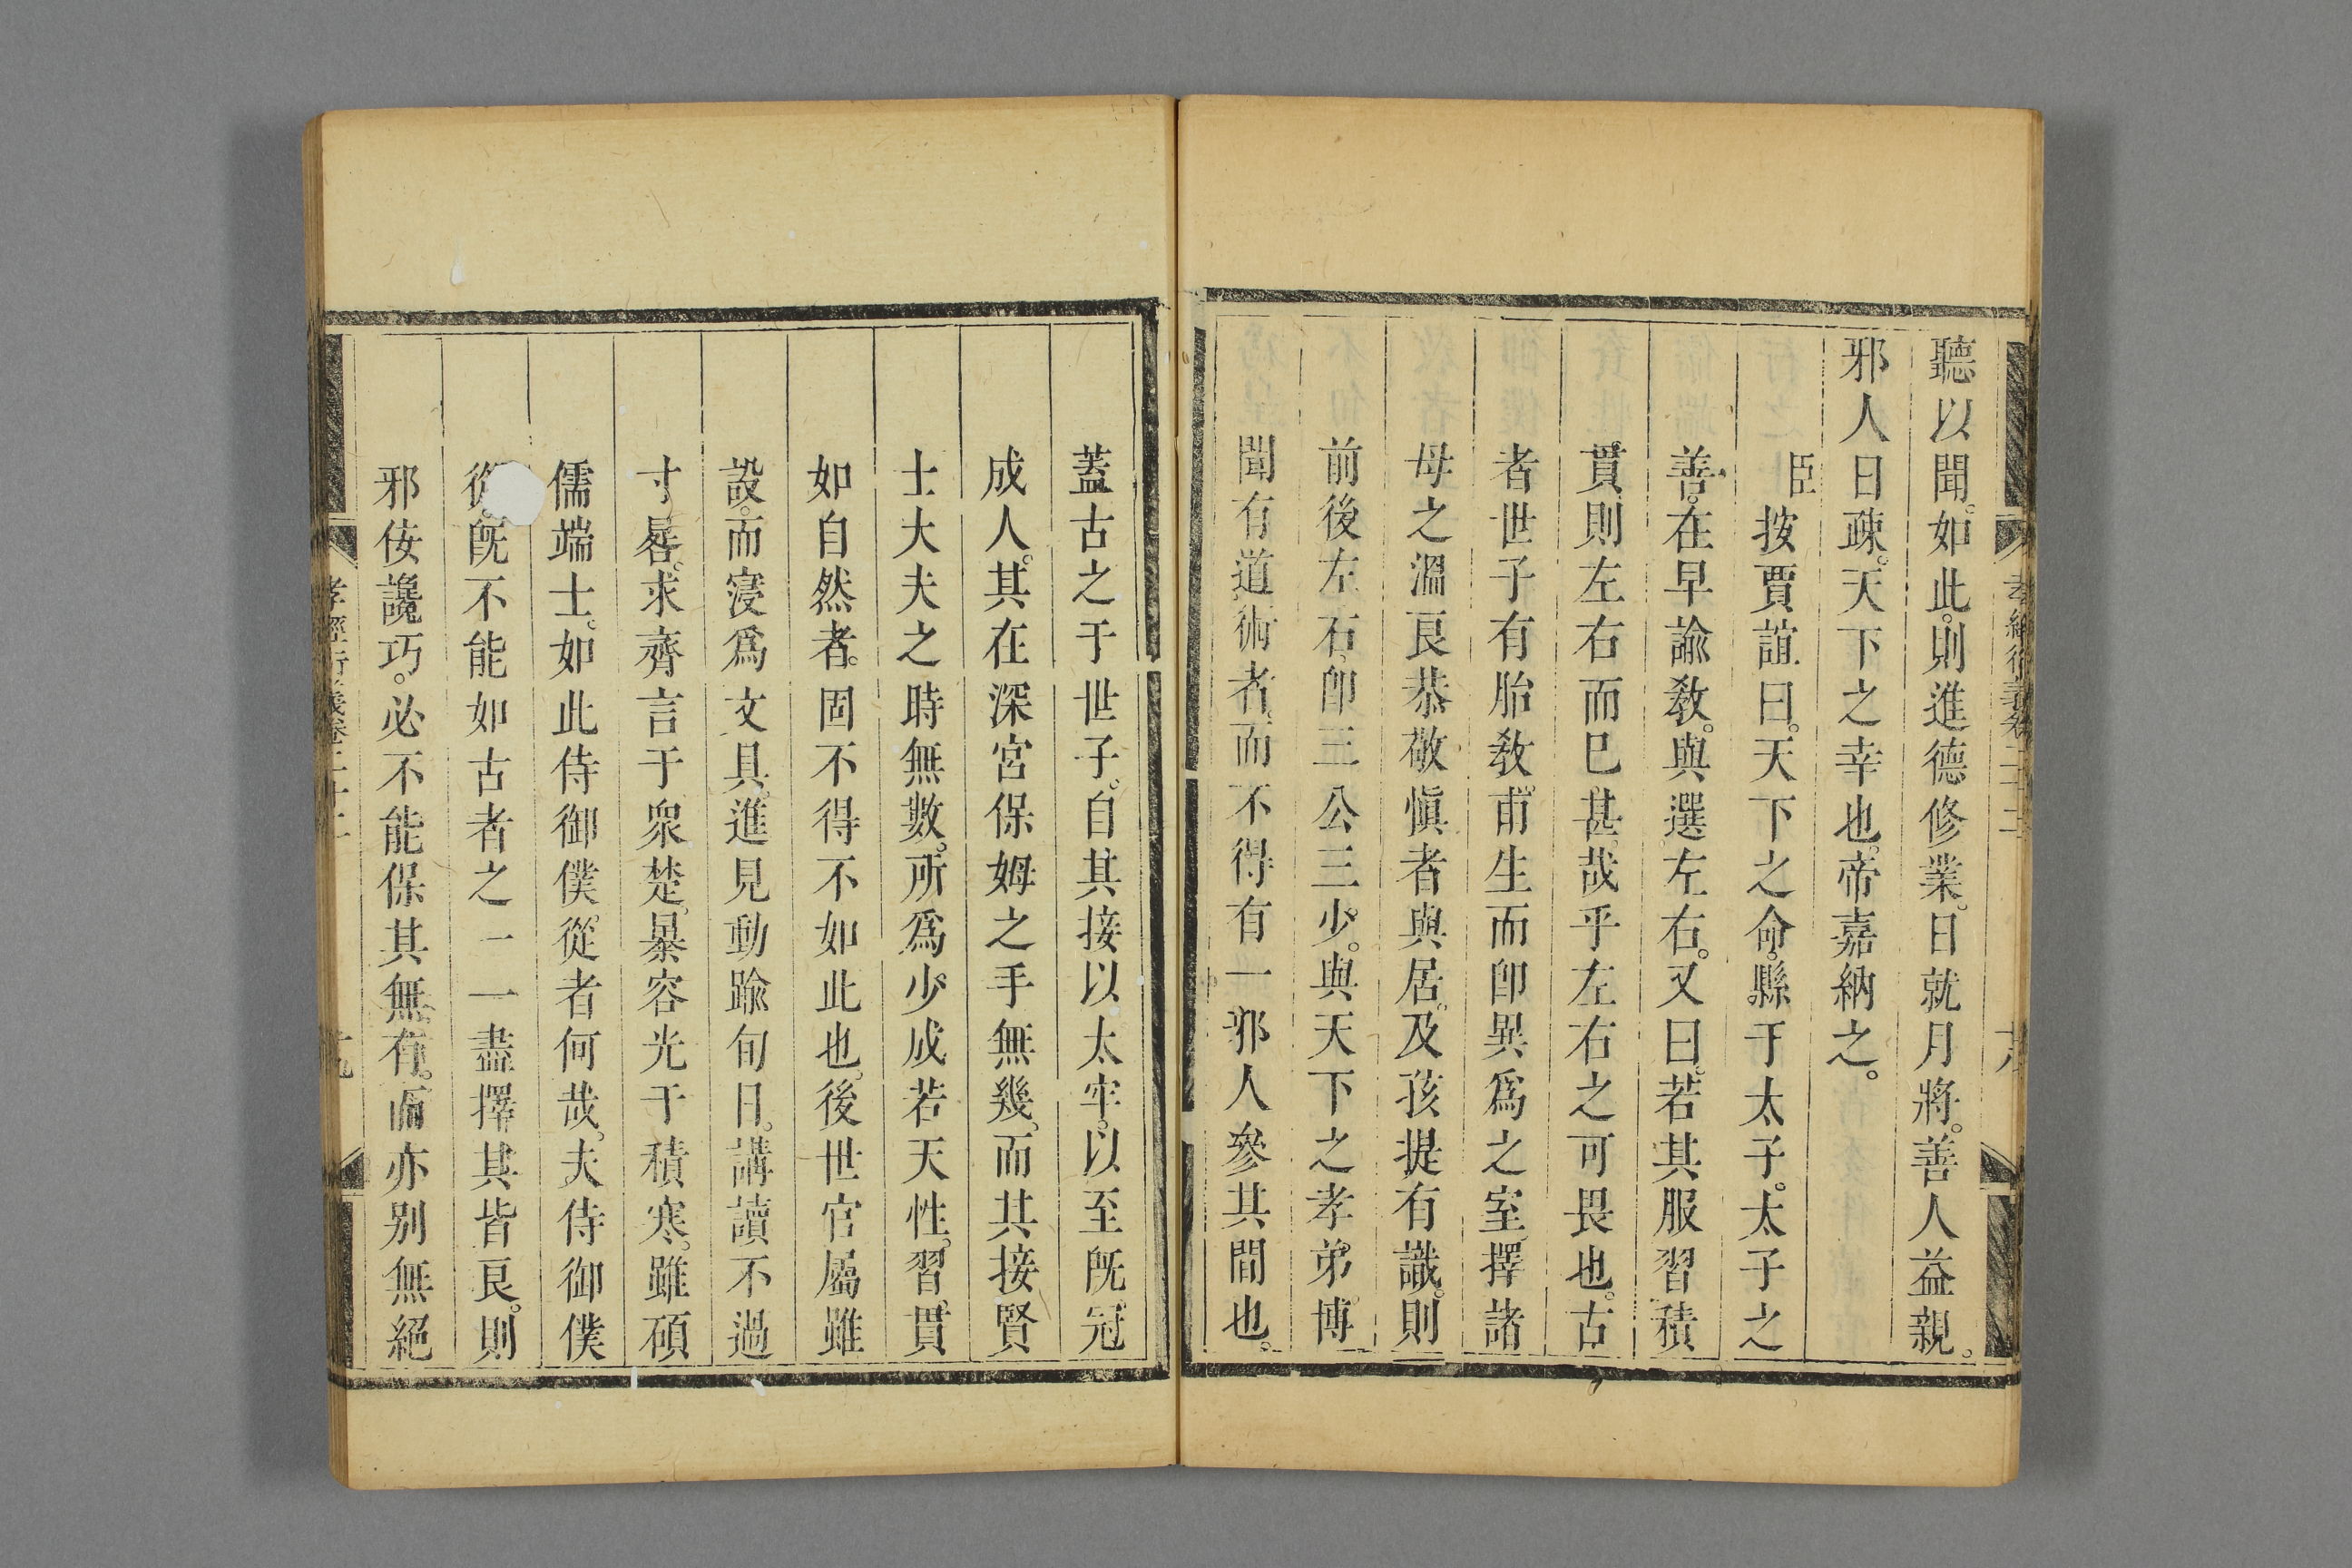 聽以聞。如此。則進德修業。日就月將。善人益親。
邪人日疎。天下之幸也。帝嘉納之。
臣按賈誼曰。天下之命。縣于太子。太子之
善。在早諭教。與選左右。又曰。若其服習積
貫。則左右而已。甚哉乎左右之可畏也。古
者世子有胎教。甫生而卽異爲之室。擇諸
母之溫良恭敬愼者與居。及孩提有識。則
前後左右。卽三公三少。與天下之孝弟。博
聞有道術者。而不得有一邪人參其間也。
蓋古之于世子。自其接以太牢。以至旣冠
成人。其在深宮保姆之手無幾。而其接賢
士大夫之時無數。所爲少成若天性。習貫
如自然者。固不得不如此也。後世官屬雖
設。而寖爲文具。進見動踰旬日。講讀不過
寸晷。求齊言于衆楚。暴容光于積寒。雖碩
儒端士。如此侍御僕從者何哉。夫侍御僕
從。旣不能如古者之一一盡擇其皆良。則
邪佞讒巧。必不能保其無有。而亦別無絕
孝經衍義卷二十二